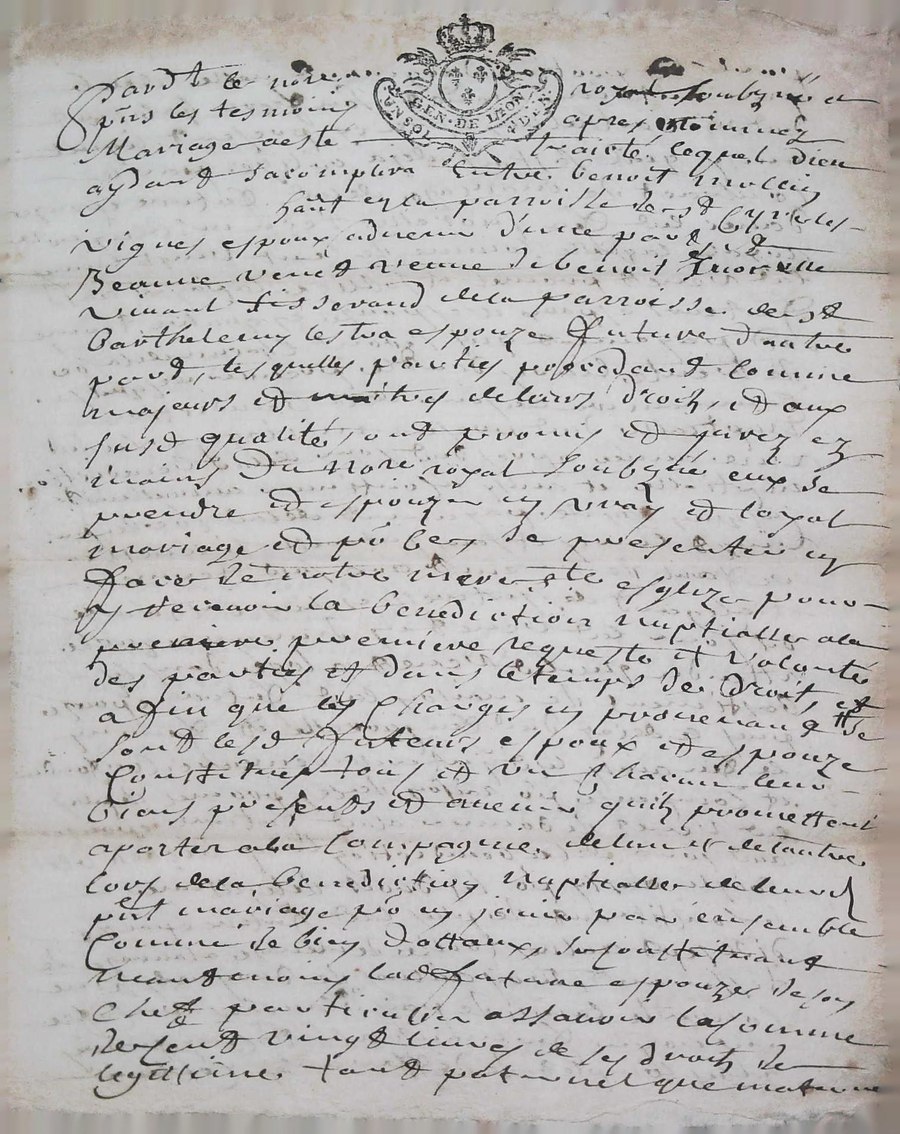 Pardt le nore royal soubzné et
GEN. DE LYON
UN SOL 4 DEN.
pnts les tesmoins apres nommez
Mariage a este traicté lequel dieu
aydant sacomplira Entre benoit
habt en la parroisse de st Cyr les
vignes espoux advenir d'une part, et
Jeanne venet veuve de benoit
vivant tisserand de la parroisse de st
Barthelemy lestra espouze future d'autre
part, lesquelles parties procedant comme
majeurs et maitres de leurs droits, et aux
susd qualité, ont promis et jurez ez
mains du nore royal soubzné eux se
prendre et espouzer en vray et loyal
mariage et po ce se presenter en
face de notre mere ste esglize pour
y recevoir la benediction nuptialle a la
premiere premiere requeste et volonté
des parties et dans le temps de droit, et
afin que les charges en provenant se
sont lesd futeurs espoux et espouze
Constitués tous et un chacun leur
biens presents et avenir quils promettent
aporter a la Compagnie de lun et de lautre
lors de la benediction nuptialle de leurd
pnt mariage po en jouir par ensemble
Comme de bien dottaux, se constituant
neantmoins lad future espouze de son
chef particulier assavoir la somme
de cent vingt livres de ses droits de
legittime tant paternel que maternel